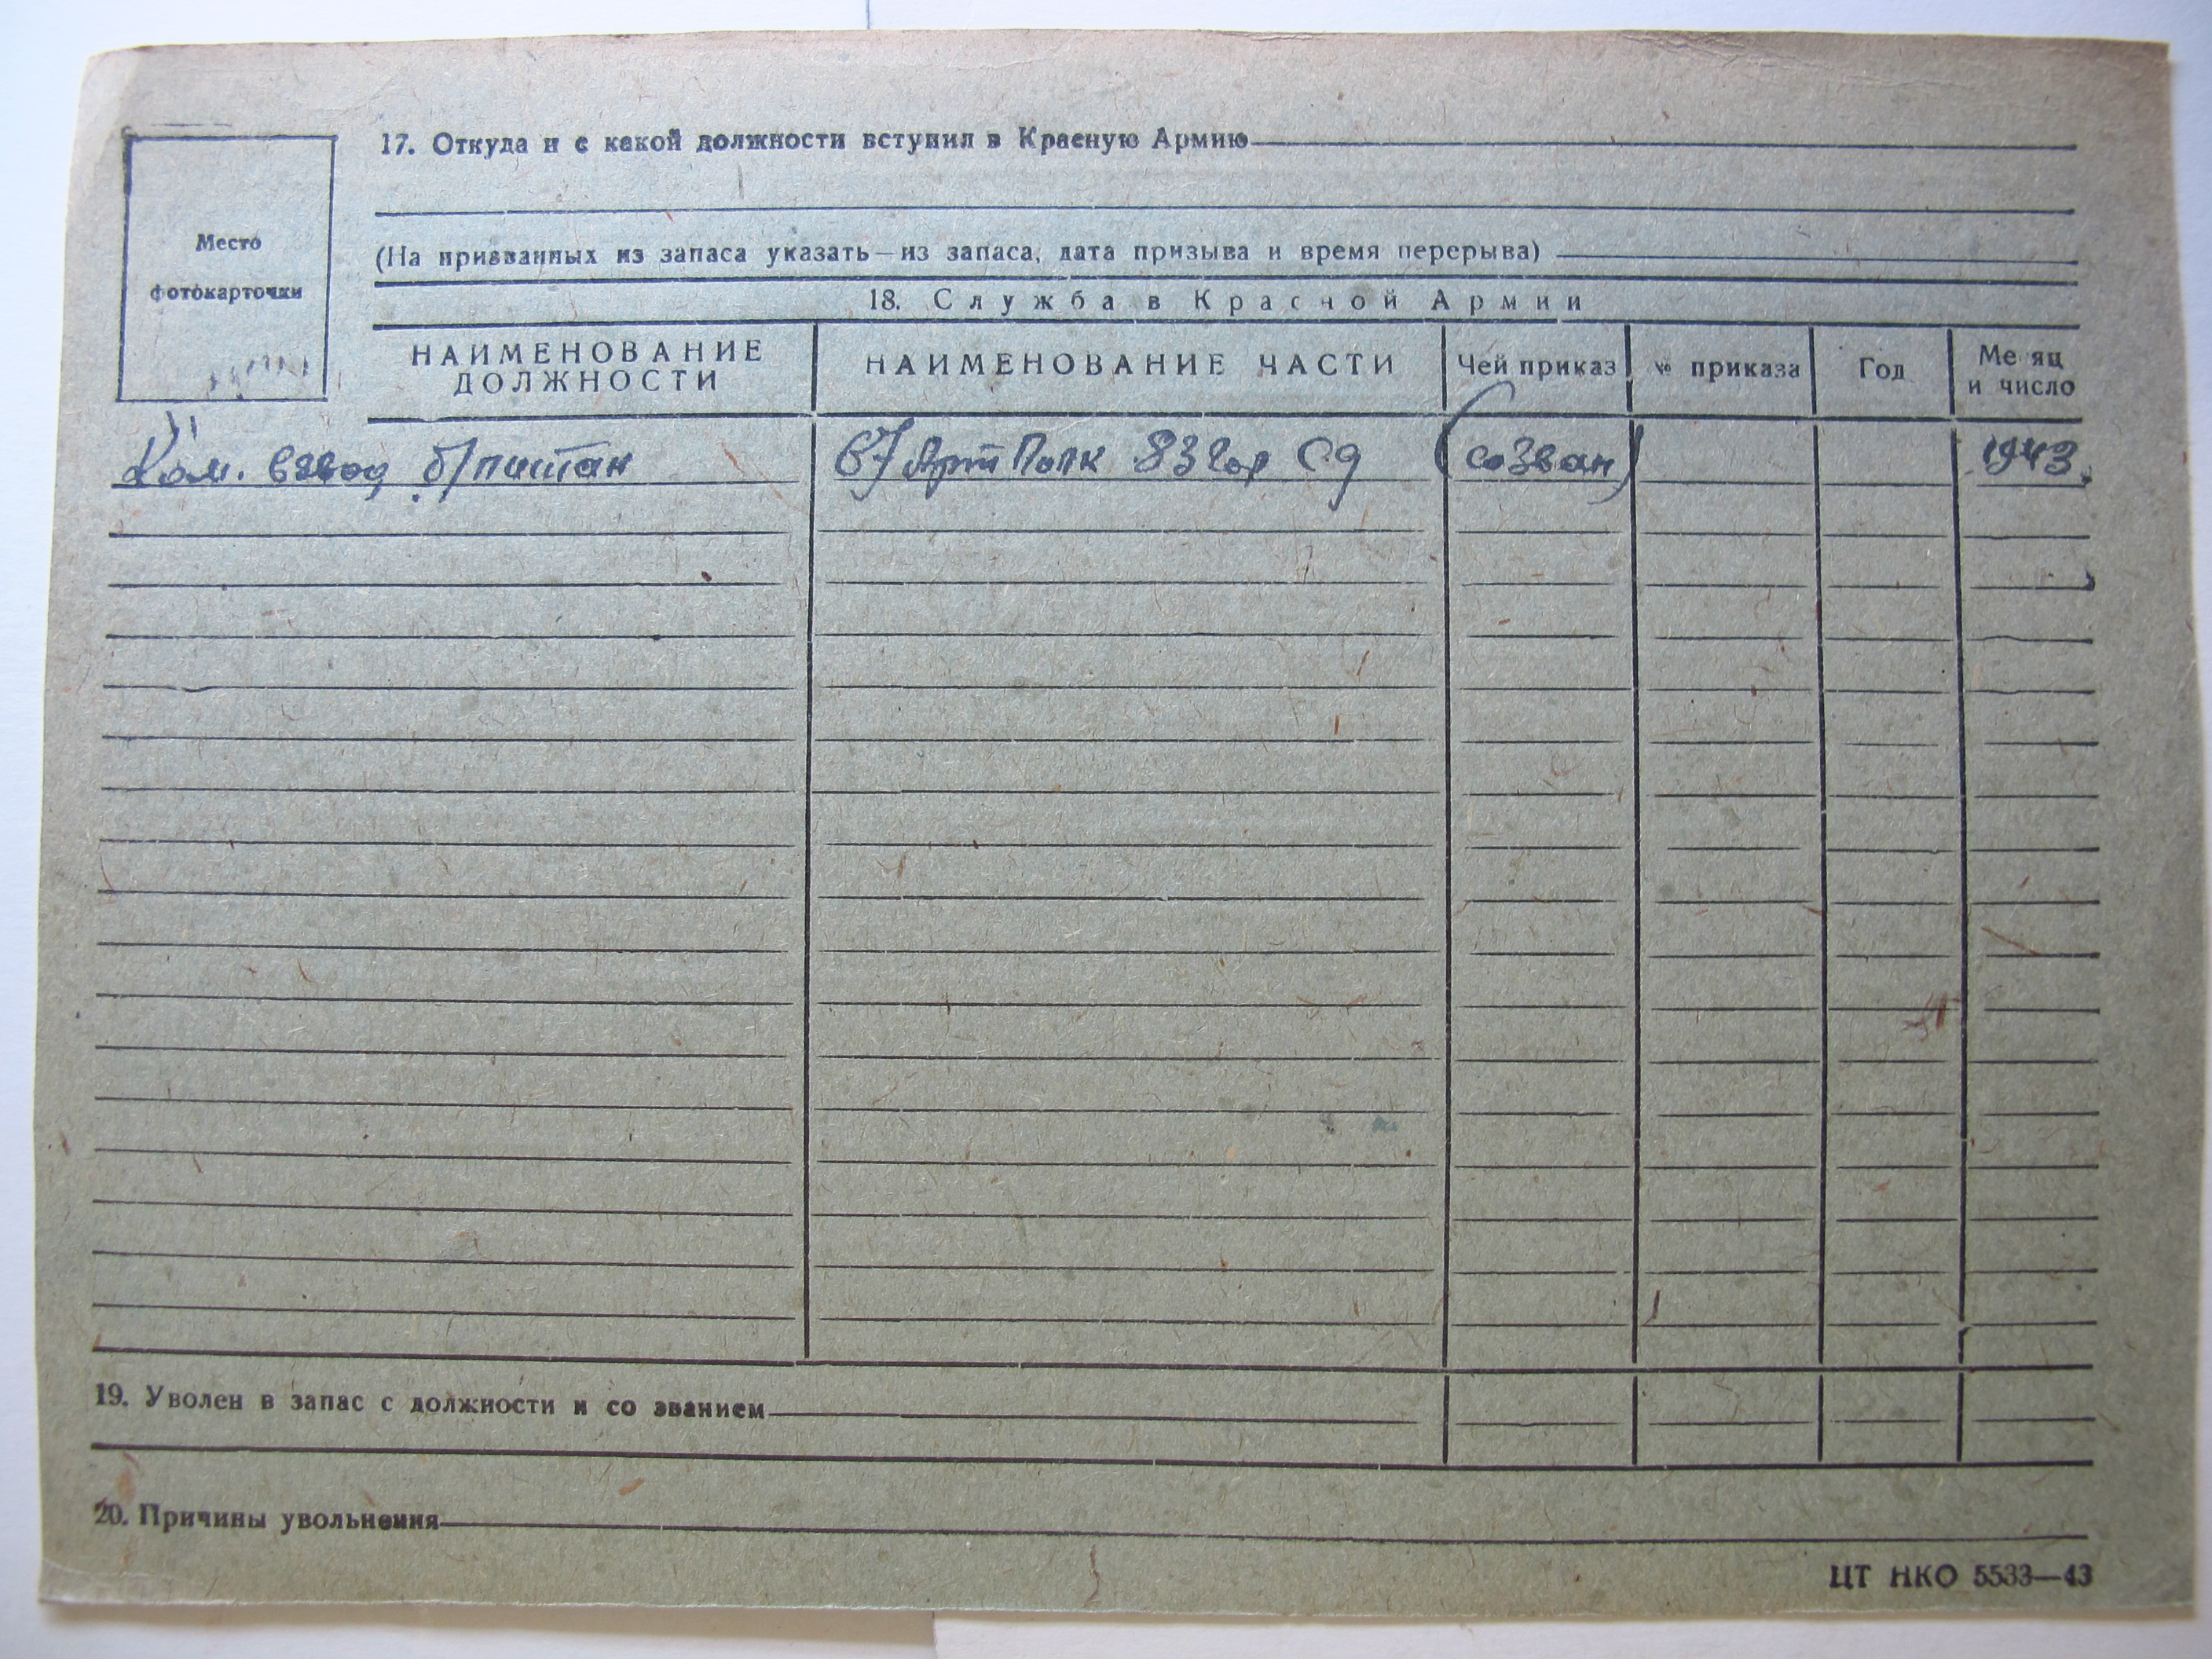 17. Откуда и с какой должности вступил в Красную Армию
Место
фотокарточки
(На призванных из запаса указать—из запаса, дата призыва и время перерыва)
18. Служба в Красной Армии
НАИМЕНОВАНИЕ ДОЛЖНОСТИ
НАИМЕНОВАНИЕ ЧАСТИ
Чей приказ
№ приказа
Год
Месяц и число
Ком. взвод б/питан 67 Арт Полк 83 гор СД (созван) 1943.
19. Уволен в запас с должности и со званием
20. Причины увольнения
ЦТ НКО 5533—43